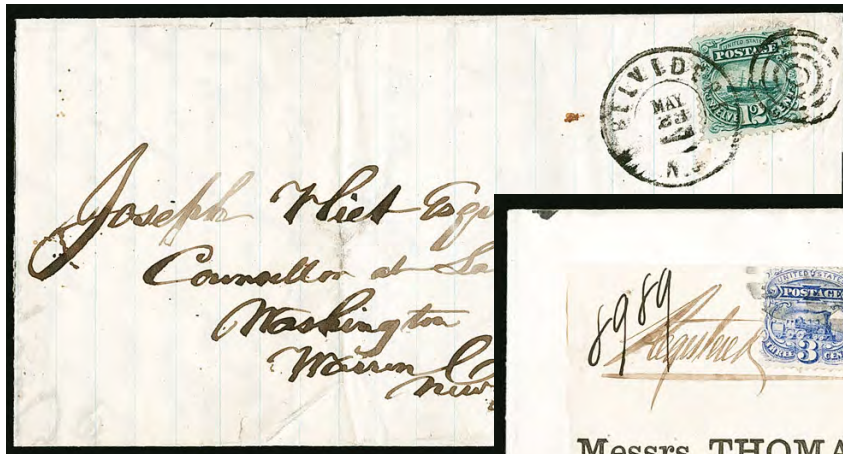 UNITED STATES
POSTAGE
12
BELVIDE
MAY
N.J.
Joseph Vliet Esqr
Counsellor at La
Washington
Warren C
New
UNITED STATES
POSTAGE
THREE CEN
3
8989
Registered
Messrs. THOMA